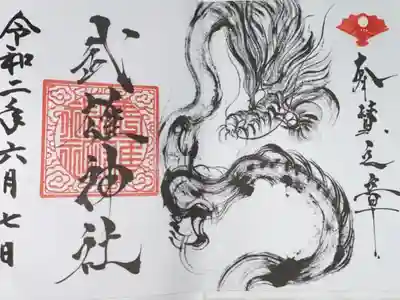 奉賛之章
武雄神社
令和二年六月七日